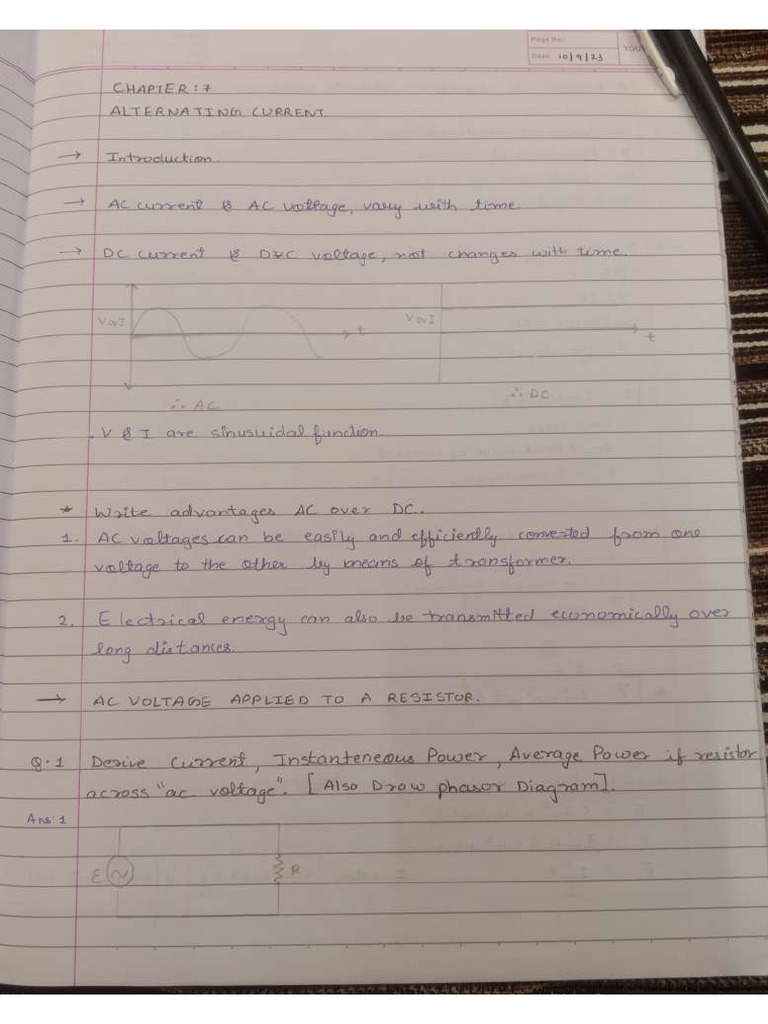 Page No.:
Date: 10/9/23
YOU
CHAPTER : 7
ALTERNATING CURRENT
→ Introduction.
→ AC current & AC voltage, vary with time.
→ DC current & DC voltage, not changes with time.
V or I
t
V or I
t
∴ AC
∴ DC
. V & I are sinusuidal function.
* Write advantages AC over DC.
1. AC voltages can be easily and efficiently converted from one
voltage to the other by means of transformer.
2. Electrical energy can also be transmitted economically over
long distances.
→ AC VOLTAGE APPLIED TO A RESISTOR.
Q.1 Derive current, Instanteneous Power, Average Power if resistor
across "ac voltage". [Also Draw phasor Diagram].
Ans:1
ε
R